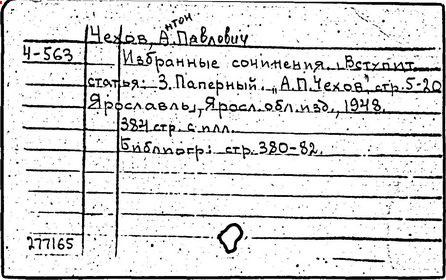 Чехов, Антон Павлович
Ч-563 Избранные сочинения. Вступит.
статья: З. Паперный. „А.П.Чехов", стр. 5-20
Ярославль, Яросл. обл. изд., 1948.
384 стр. с илл.
Библиогр: стр. 380-82.
277165